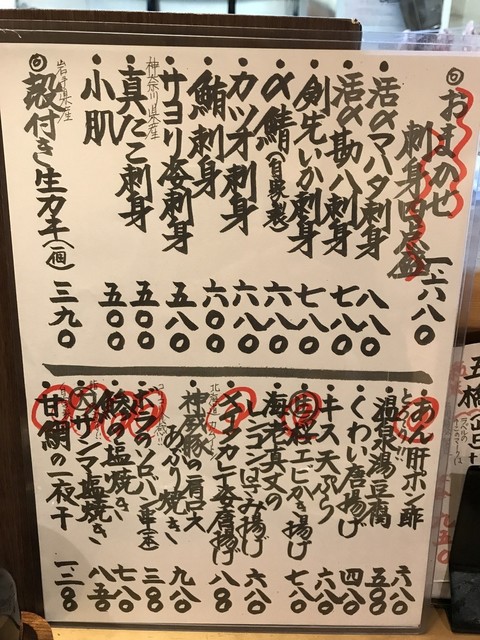 ◎おまかせ
刺身四点盛 一、六八〇
・活〆マハタ刺身 八八〇
・活〆勘八刺身 七八〇
・剣先いか刺身 七八〇
・〆鯖(自家製) 六八〇
・カツオ刺身 六八〇
・鮪刺身 六〇〇
・サヨリ姿刺身 五八〇
神奈川県産
・真たこ刺身 五〇〇
・小肌 五〇〇
岩手県産
◎殻付き生カキ(一個) 三九〇
・あん肝ポン酢 六八〇
とろ〜り!!
・温泉湯豆腐 五〇〇
・くわい唐揚げ 四八〇
・キス天ぷら 六八〇
エビかき揚げ 七八〇
・海老真丈の
レンコンはさみ揚げ 六八〇
・メイタカレイ姿唐揚げ 八八〇
北海道
・神威豚の肩ロース
あぶり焼き 九八〇
・ボラのソロバン串(一本) 三八〇
・鮎の塩焼き 七八〇
サンマ塩焼き 八五〇
・甘鯛の一夜干 一、二八〇